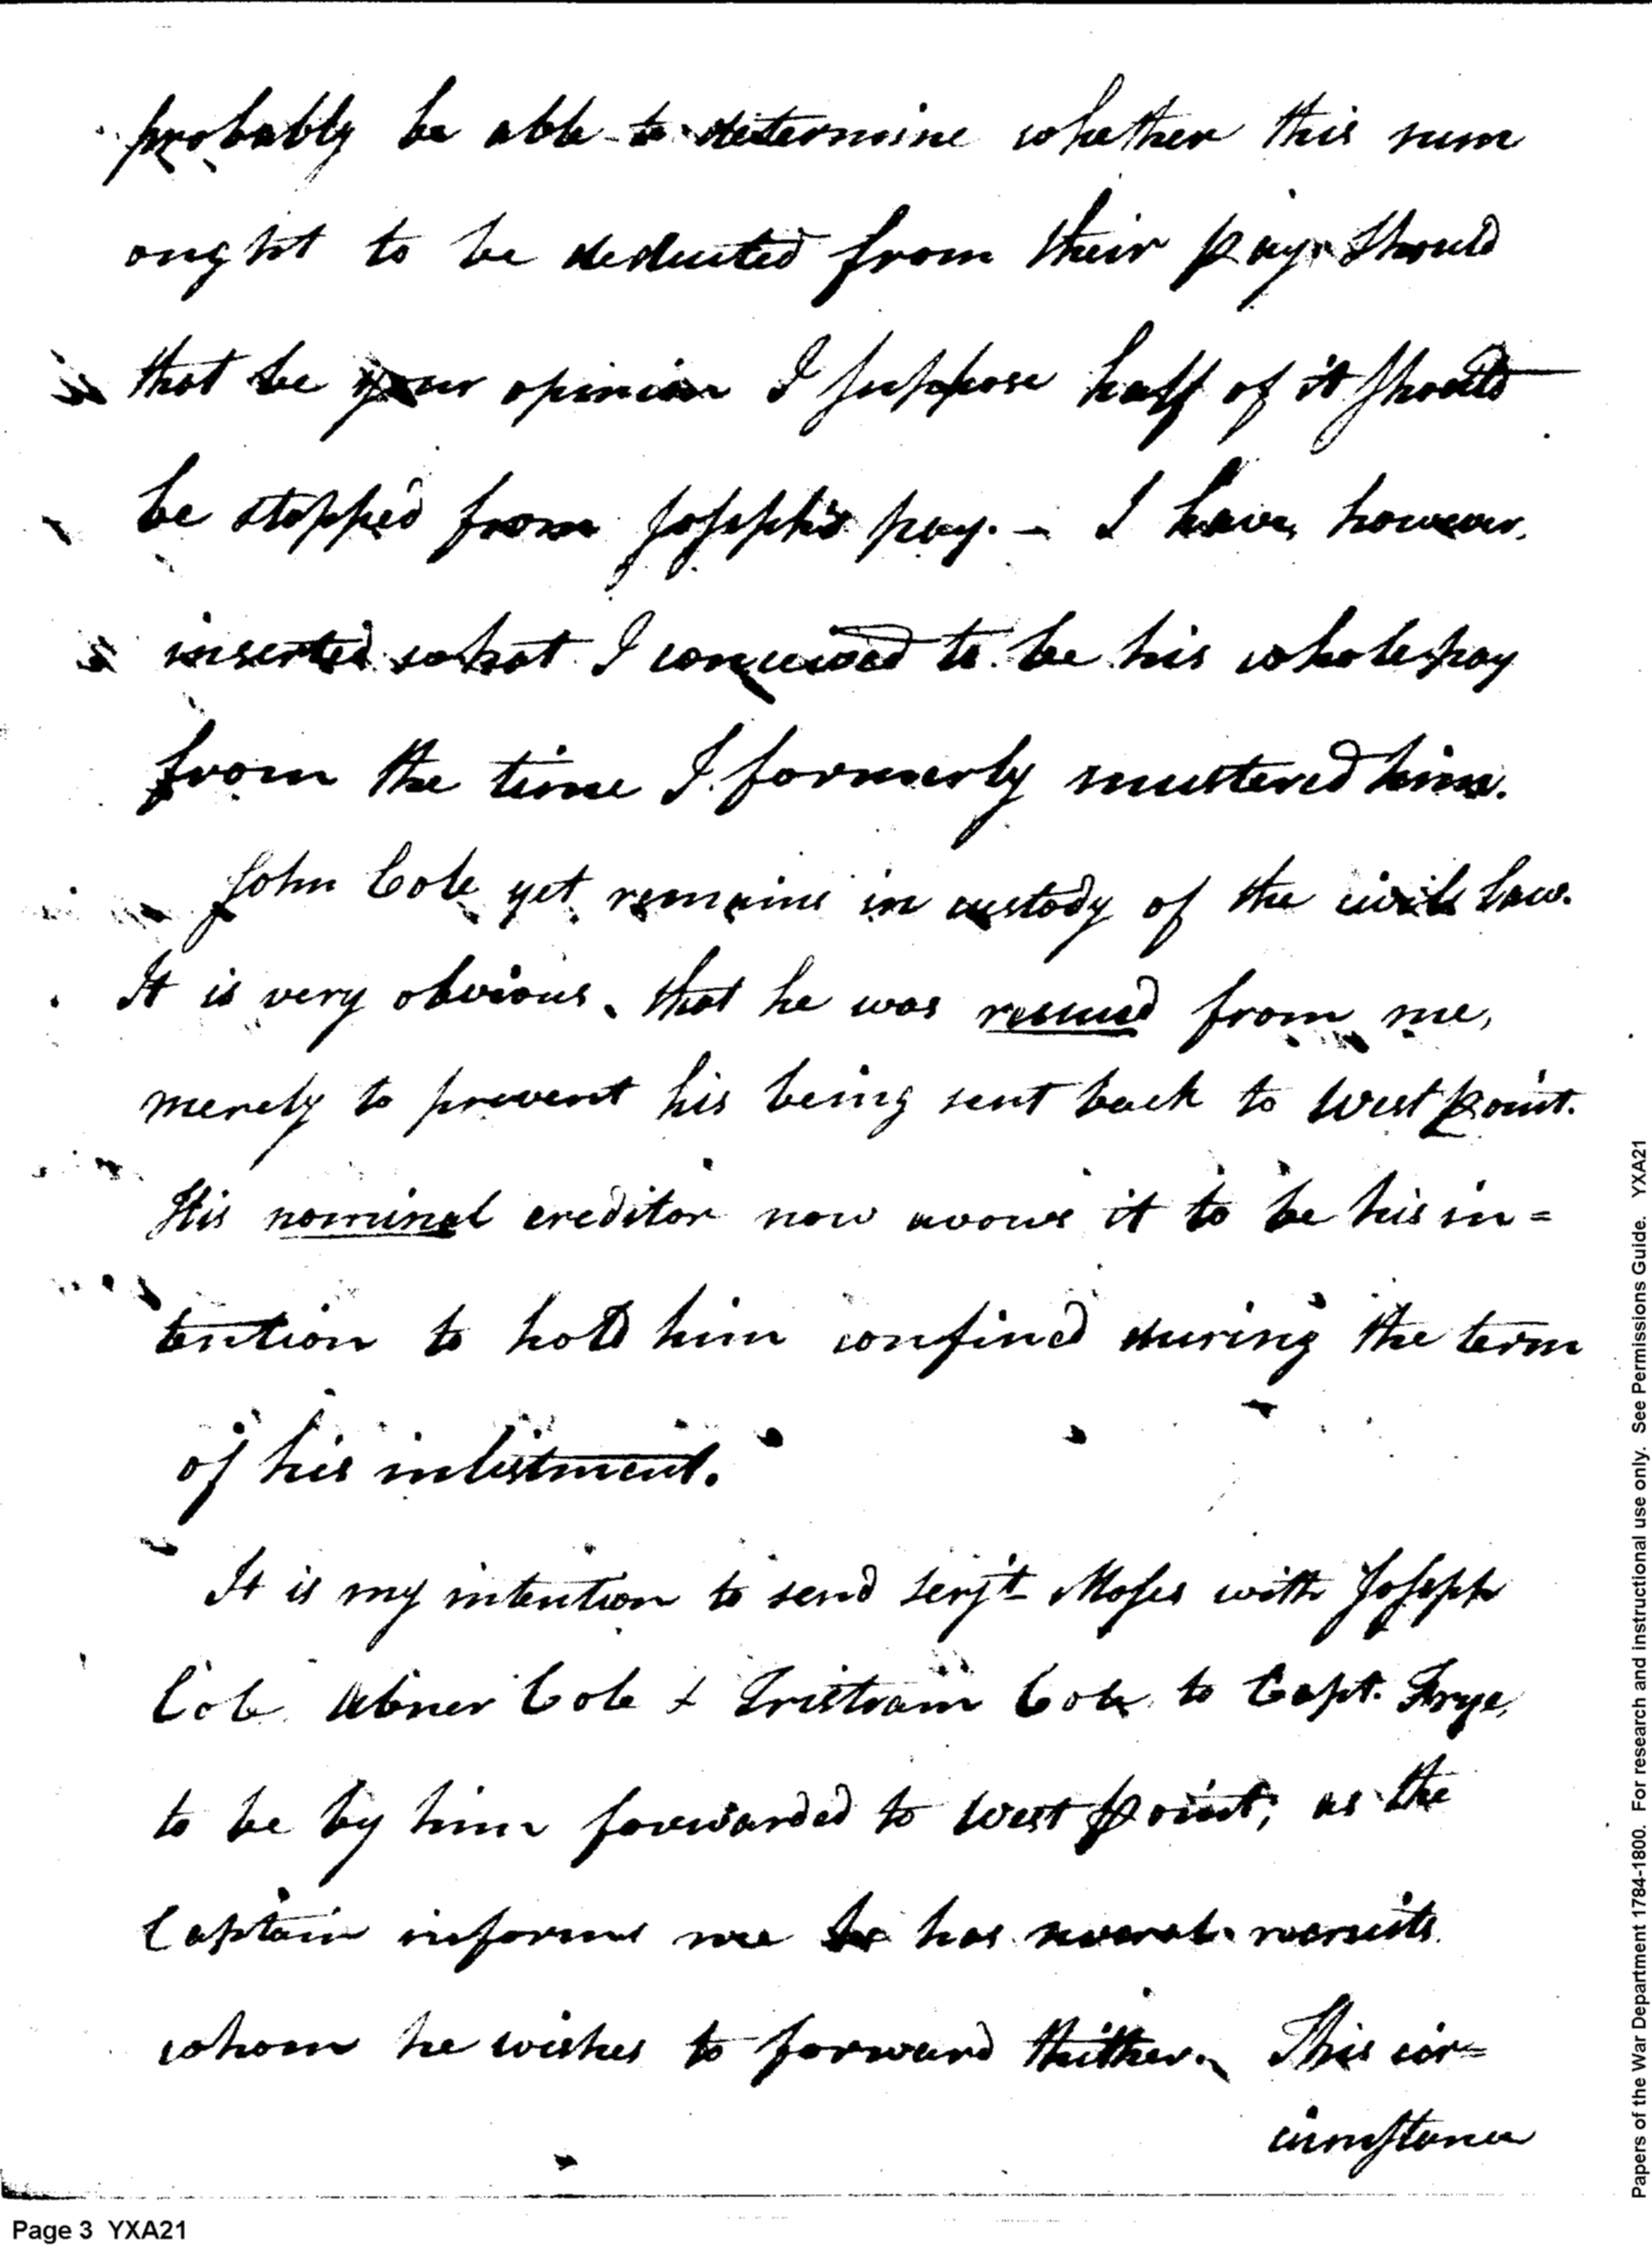 probably be able to determine whether this sum
ought to be deducted from their pay. Should
that be your opinion I suppose half of it should
be stopped from Joseph's pay. – I have, however,
inserted what I conceived to be his whole pay
from the time I formerly mustered him.
John Cole yet remains in custody of the civil law.
It is very obvious, that he was rescued from me,
merely to prevent his being sent back to West point.
His nominal creditor now avows it to be his in=
tention to hold him confined during the term
of his inlistment.
It is my intention to send serj't Moses with Joseph
Cole Abner Cole & Tristram Cole to Capt. Frye,
to be by him forwarded to West point; as the
Captain informs me he has several recruits
whom he wishes to forward thither. This cir=
cumstance
Page 3 YXA21
Papers of the War Department 1784-1800. For research and instructional use only. See Permissions Guide. YXA21